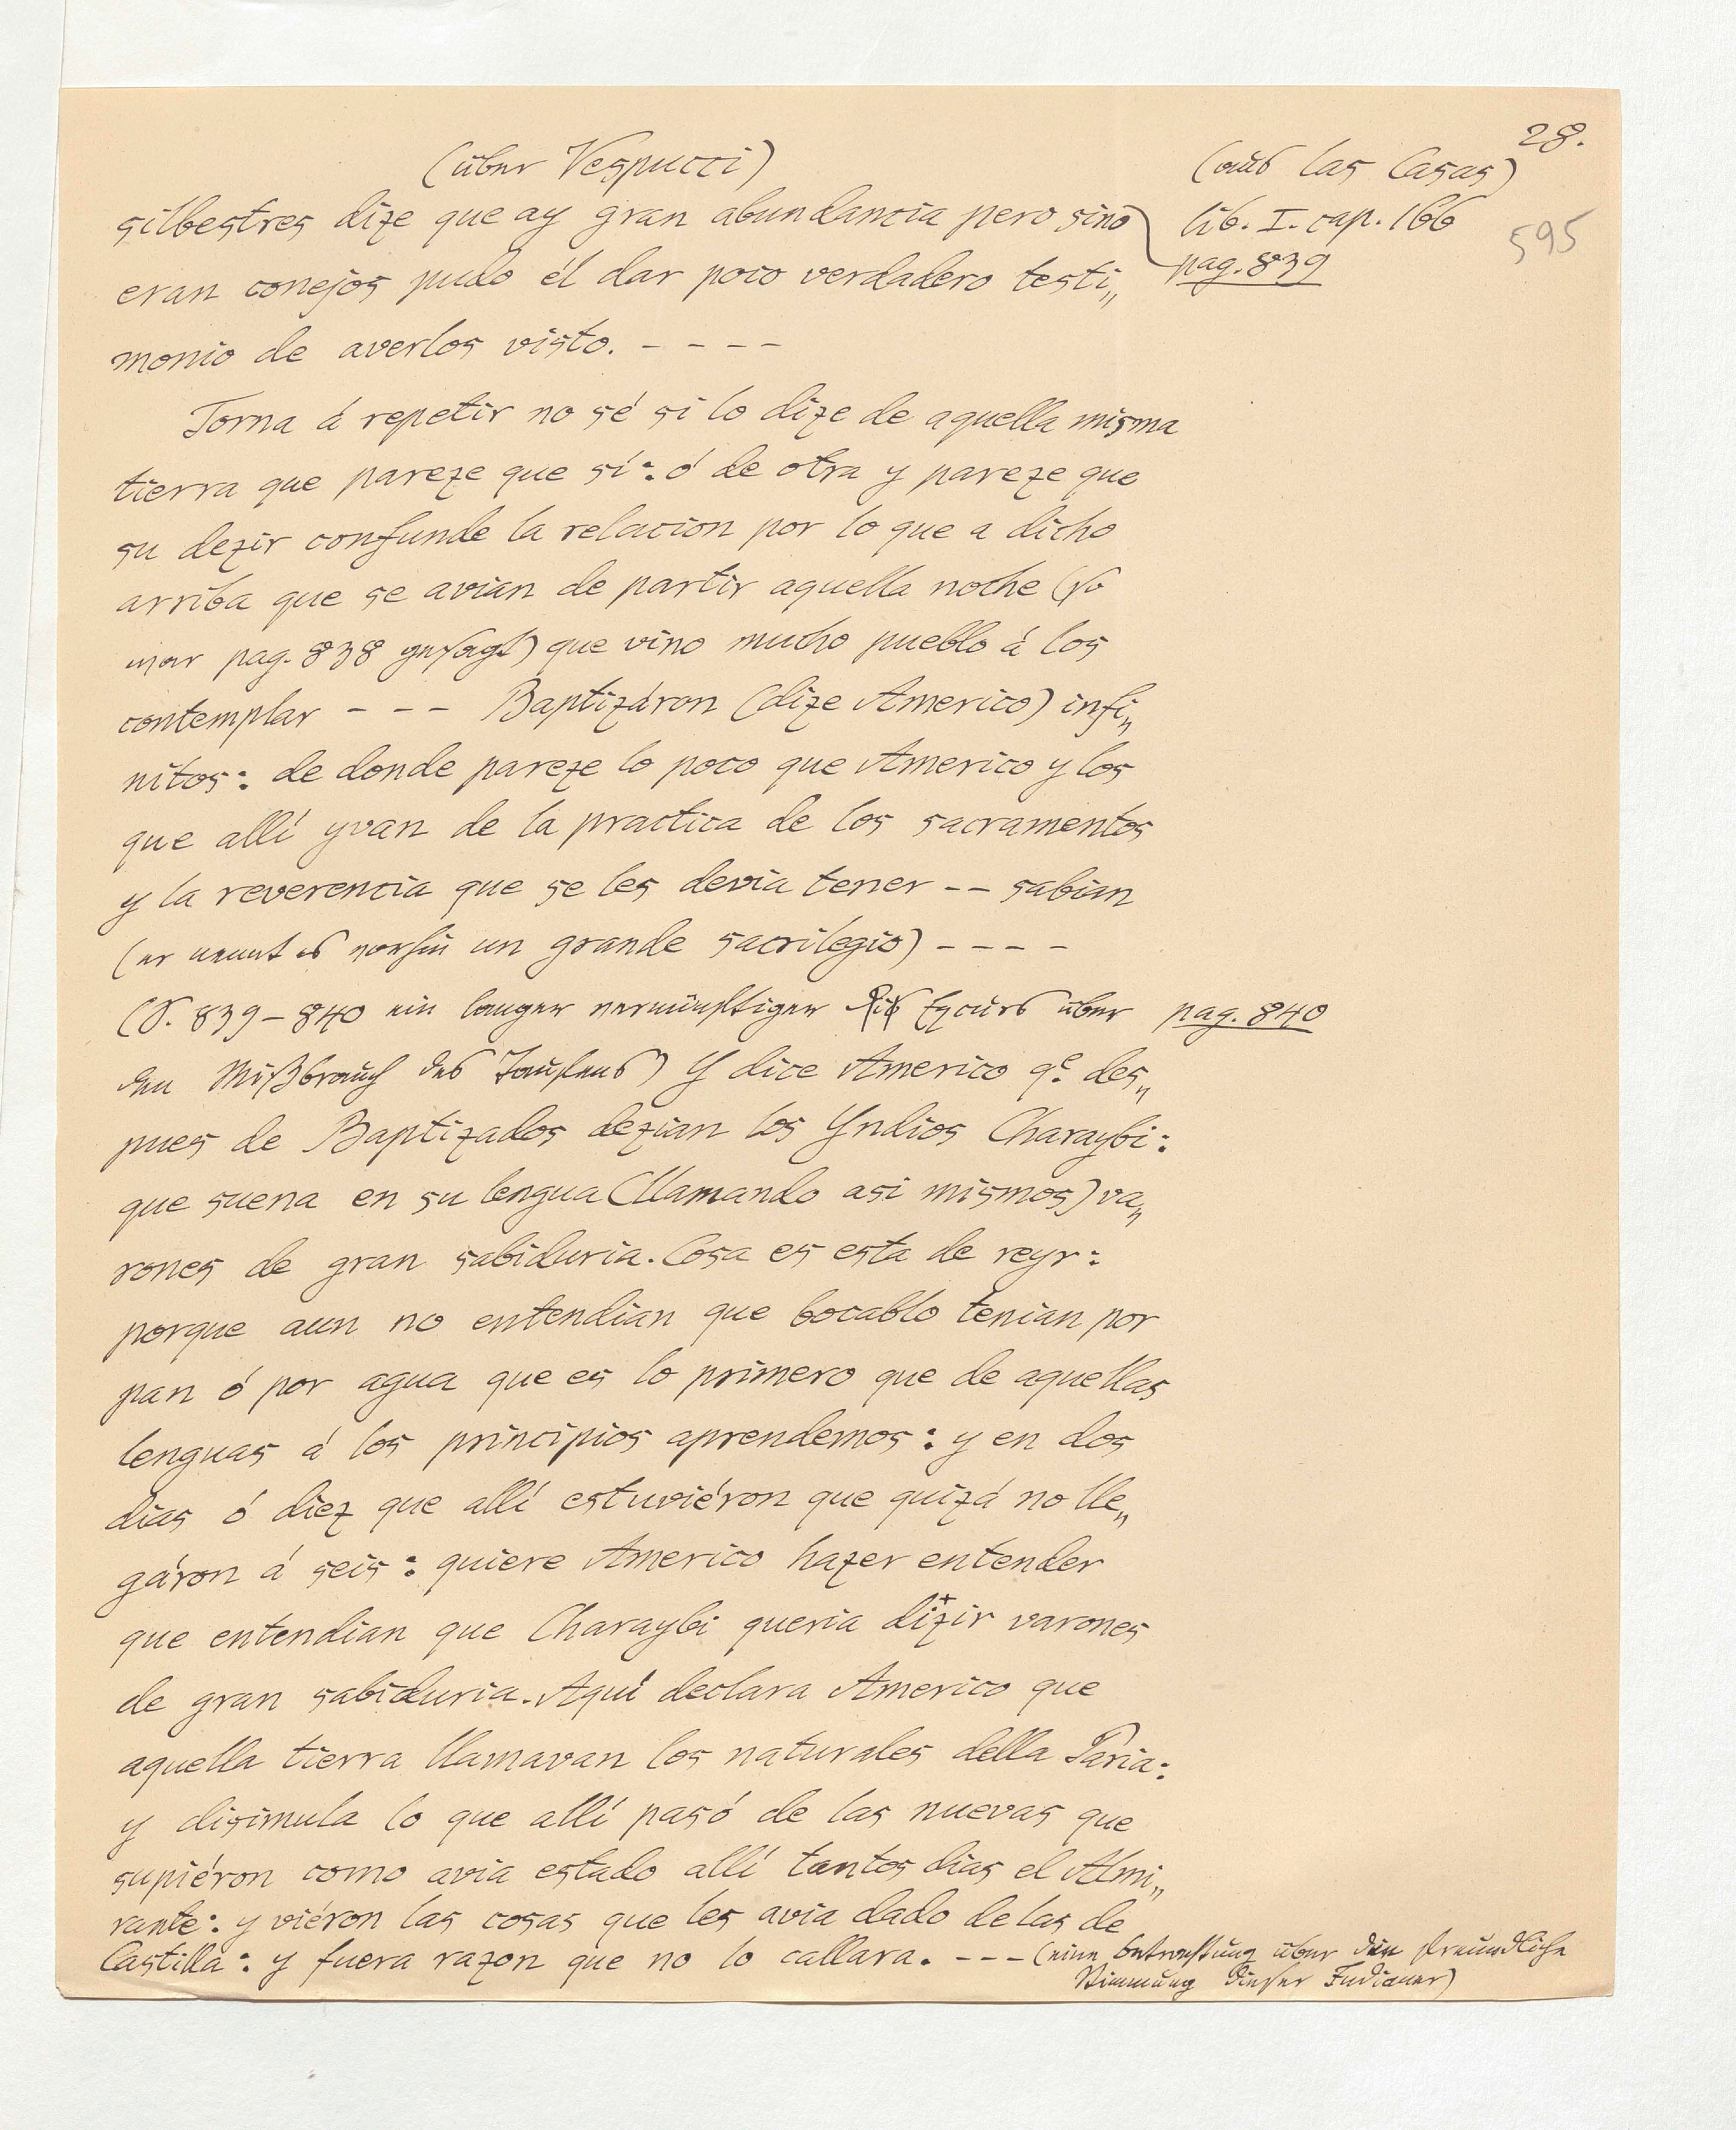 28.
(über Vespucci)
(aus las Casas)
silbestres dize que ay gran abundancia pero sino
lib. I. cap. 166
595
eran conejos pudo él dar poco verdadero testi„
pag. 839
monio de averlos visto. – – – –
Torna á repetir no sé si lo dize de aquella misma
tierra que pareze que sí: ó de otra y pareze que
su dezir confunde la relacion por lo que a dicho
arriba que se avian de partir aquella noche (so
war pag. 838 gesagt) que vino mucho pueblo á los
contemplar – – – Baptizáron (dize Americo) infi„
nitos: de donde pareze lo poco que Americo y los
que allí yvan de la practica de los sacramentos
y la reverencia que se les devia tener – – sabian
(er nennt es vorhin un grande sacrilegio) – – – –
(S. 839–840 ein langer vernünftiger Excurs über
pag. 840
den Mißbrauch des Taufens) Y dice Americo q.e des„
pues de Baptizados dezian los Yndios Charaybi:
que suena en su lengua (llamando asi mismos) va„
rones de gran sabiduria. Cosa es esta de reyr:
porque aun no entendian que bocablo tenian por
pan ó por agua que es lo primero que de aquellas
lenguas á los principios aprendemos: y en dos
dias ó diez que allí estuviéron que quizá no lle„
gáron á seis: quiere Americo hazer entender
que entendian que Charaybi queria dizir varones
de gran sabiduria. Aquí declara Americo que
aquella tierra llamavan los naturales della Paria:
y disimula lo que allí pasó de las nuevas que
supiéron como avia estado allí tantos dias el Almi„
rante: y viéron las cosas que les avia dado de las de
Castilla: y fuera razon que no lo callara. – – – (eine Betrachtung über die freundliche
Stimmung dieser Indianer)